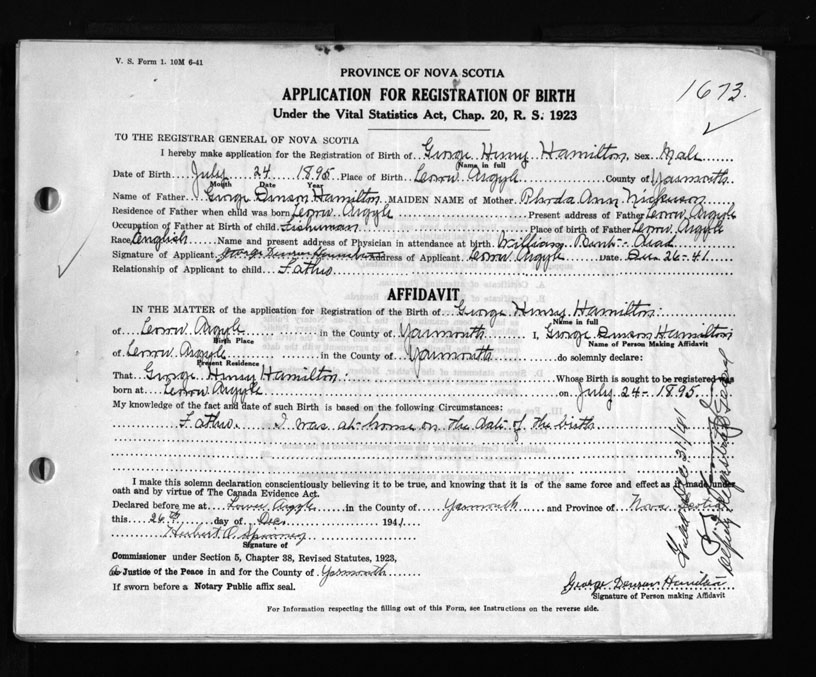 V. S. Form 1. 10M 6-41
PROVINCE OF NOVA SCOTIA
1673.
APPLICATION FOR REGISTRATION OF BIRTH
Under the Vital Statistics Act, Chap. 20, R. S. 1923
TO THE REGISTRAR GENERAL OF NOVA SCOTIA
I hereby make application for the Registration of Birth of George Henry Hamilton Sex Male
Name in full
Date of Birth July 24 1895 Place of Birth Lower Argyle County of Yarmouth
Month Date Year
Name of Father George Denson Hamilton MAIDEN NAME of Mother Rhoda Ann Nickerson
Residence of Father when child was born Lower Argyle Present address of Father Lower Argyle
Occupation of Father at Birth of child Fisherman Place of birth of Father Lower Argyle
Race English Name and present address of Physician in attendance at birth William - Dead
Signature of Applicant George Denson Hamilton Address of Applicant Lower Argyle Date Dec 26-41
Relationship of Applicant to child Father
AFFIDAVIT
IN THE MATTER of the application for Registration of the Birth of George Henry Hamilton
Name in full
of Lower Argyle in the County of Yarmouth I, George Denson Hamilton
Birth Place Name of Person Making Affidavit
of Lower Argyle in the County of Yarmouth do solemnly declare:
Present Residence
That George Henry Hamilton Whose Birth is sought to be registered was
born at Lower Argyle on July 24-1895.
My knowledge of the fact and date of such Birth is based on the following Circumstances:
Father. I was at home on the date of the birth
I make this solemn declaration conscientiously believing it to be true, and knowing that it is of the same force and effect as if made under
oath and by virtue of The Canada Evidence Act.
Declared before me at Lower Argyle in the County of Yarmouth and Province of Nova Scotia
this 26th day of Dec 1941
Herbert
Signature of
Commissioner under Section 5, Chapter 38, Revised Statutes, 1923,
a Justice of the Peace in and for the County of Yarmouth
If sworn before a Notary Public affix seal.
George Denson Hamilton
Signature of Person making Affidavit
For Information respecting the filling out of this Form, see Instructions on the reverse side.
Filed Dec 31/41
Deputy Registrar General